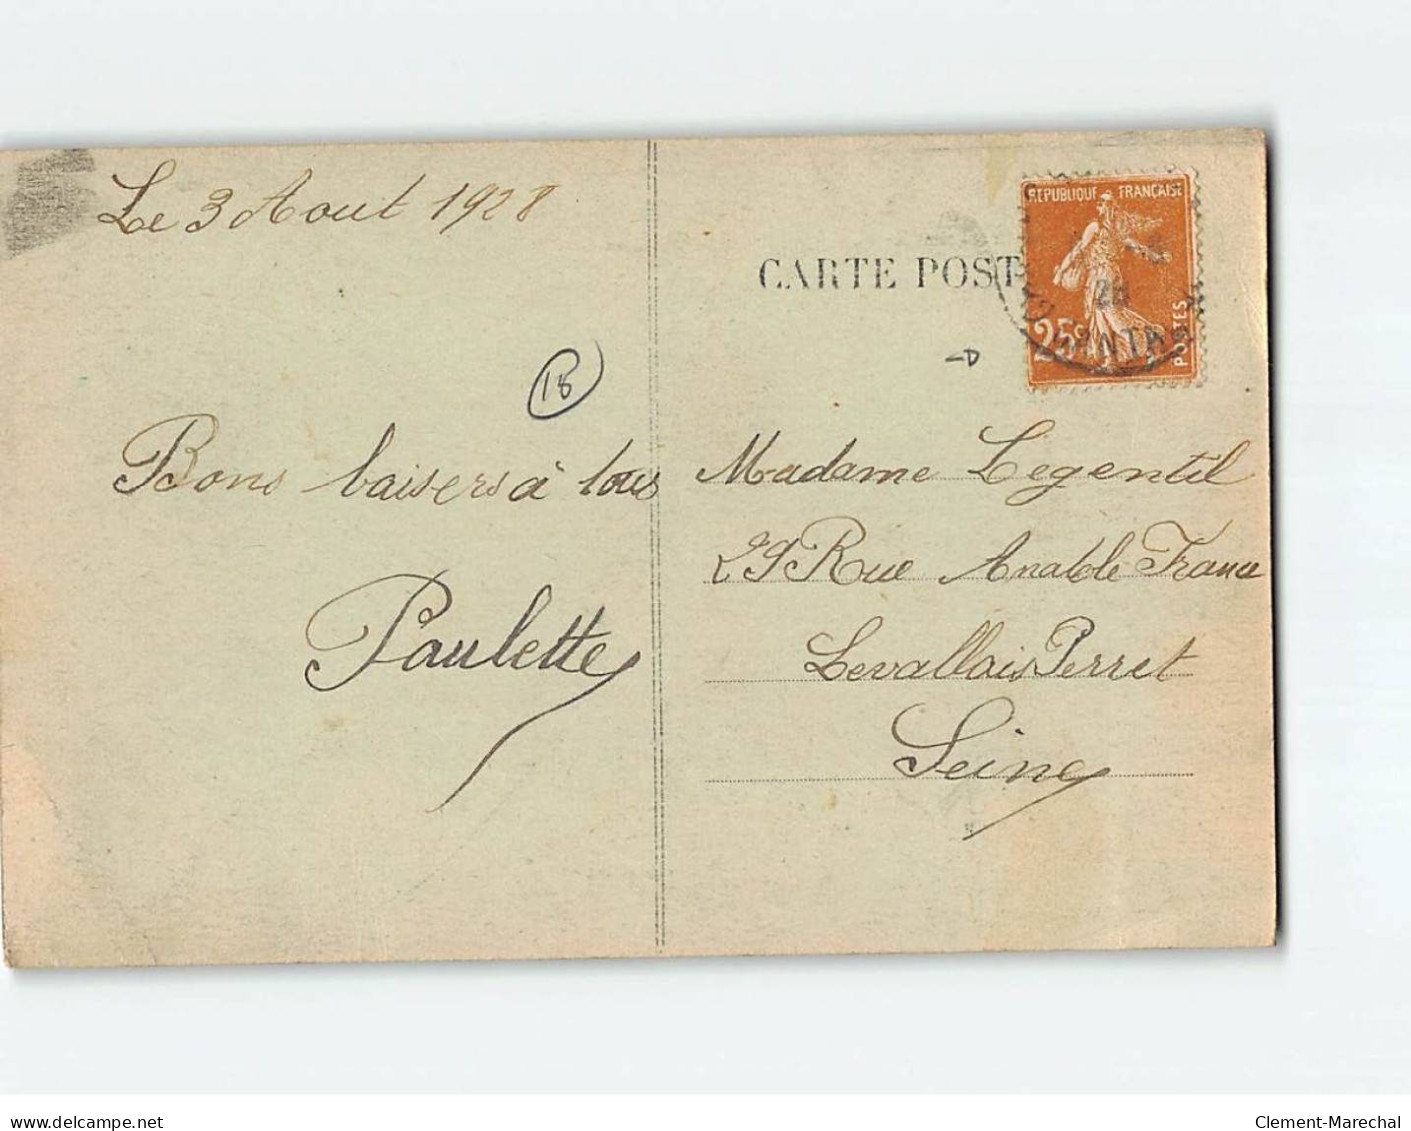 Le 3 Aout 1928
CARTE POST
REPUBLIQUE FRANÇAISE
25c
POSTES
28
18
Bons baisers à tous
Paulette
Madame Legentil
29 Rue Anatole France
Levallois Perret
Seine
www.delcampe.net
Clement-Marechal